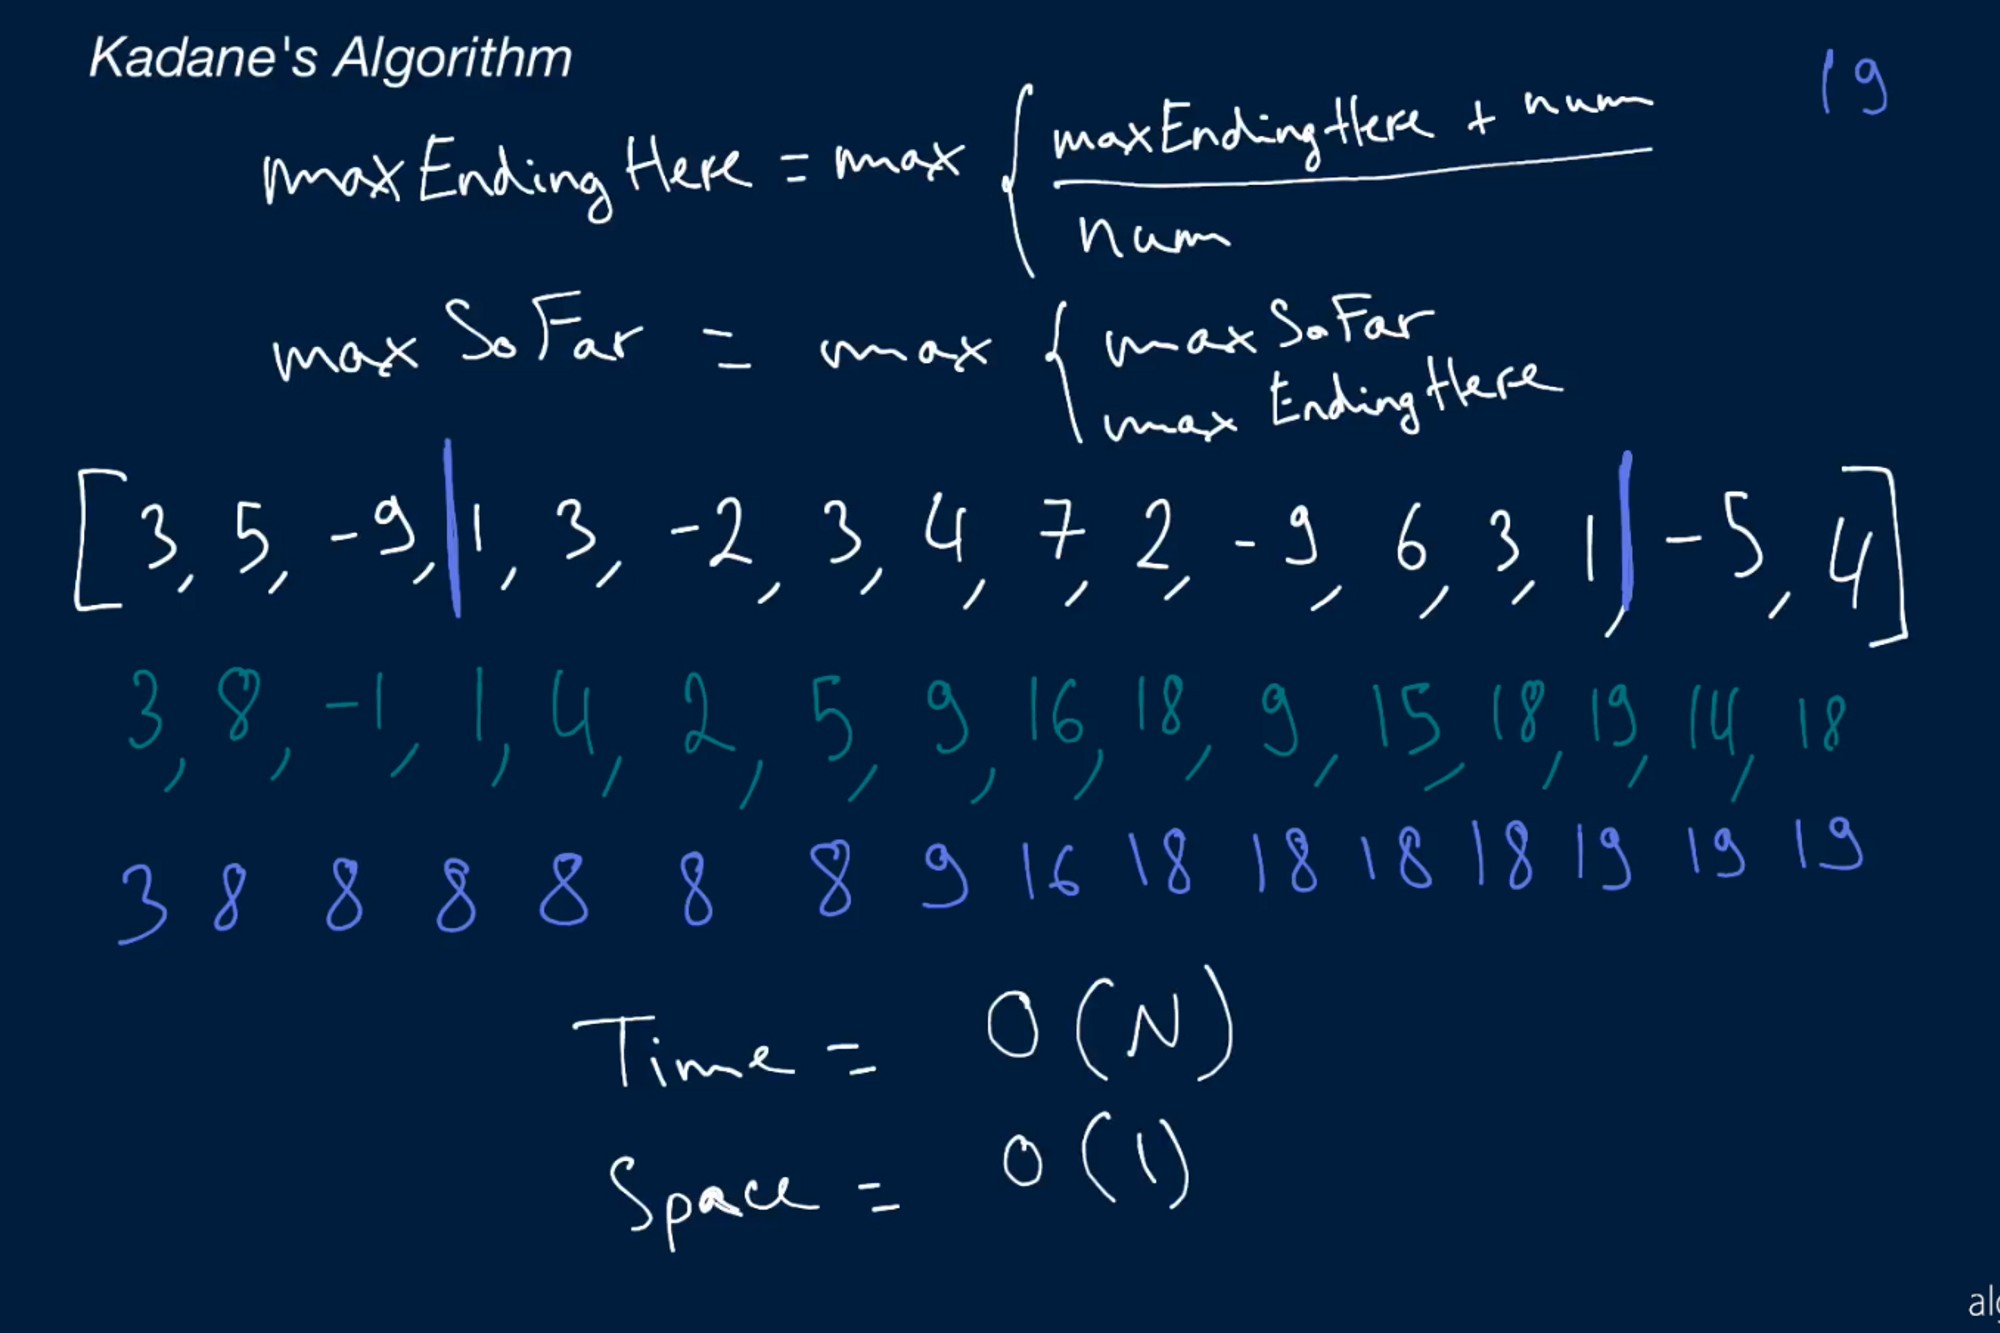 Kadane's Algorithm
19
maxEndingHere = max { maxEndingHere + num
num
maxSoFar = max { maxSoFar
maxEndingHere
[3, 5, -9, 1, 3, -2, 3, 4, 7, 2, -9, 6, 3, 1, -5, 4]
3, 8, -1, 1, 4, 2, 5, 9, 16, 18, 9, 15, 18, 19, 14, 18
3 8 8 8 8 8 8 9 16 18 18 18 18 19 19 19
Time = O(N)
Space = O(1)